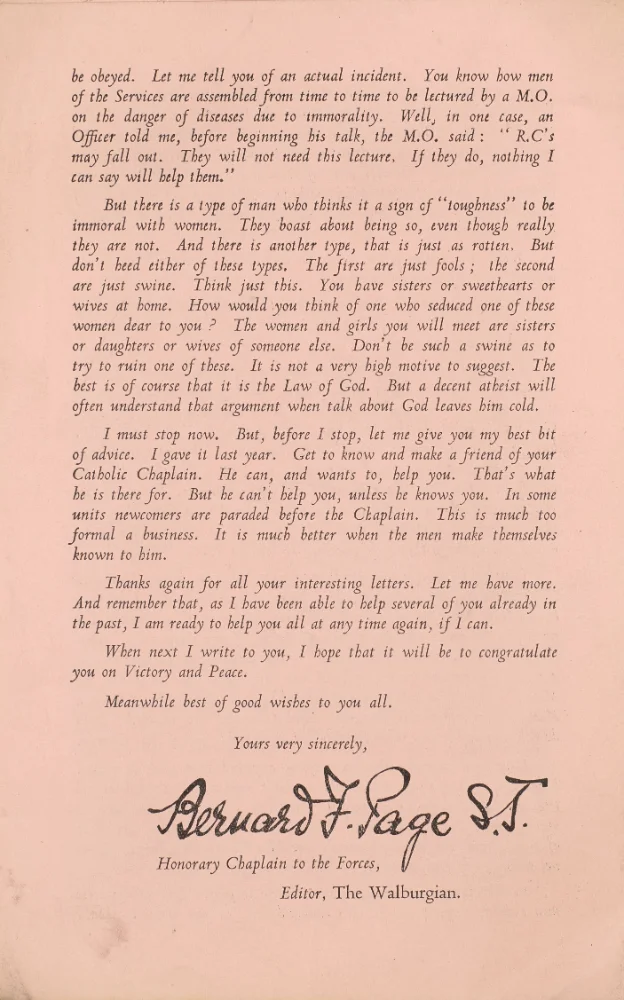 be obeyed. Let me tell you of an actual incident. You know how men
of the Services are assembled from time to time to be lectured by a M.O.
on the danger of diseases due to immorality. Well, in one case, an
Officer told me, before beginning his talk, the M.O. said : " R.C's
may fall out. They will not need this lecture. If they do, nothing I
can say will help them."
But there is a type of man who thinks it a sign of "toughness" to be
immoral with women. They boast about being so, even though really
they are not. And there is another type, that is just as rotten. But
don't heed either of these types. The first are just fools ; the second
are just swine. Think just this. You have sisters or sweethearts or
wives at home. How would you think of one who seduced one of these
women dear to you ? The women and girls you will meet are sisters
or daughters or wives of someone else. Don't be such a swine as to
try to ruin one of these. It is not a very high motive to suggest. The
best is of course that it is the Law of God. But a decent atheist will
often understand that argument when talk about God leaves him cold.
I must stop now. But, before I stop, let me give you my best bit
of advice. I gave it last year. Get to know and make a friend of your
Catholic Chaplain. He can, and wants to, help you. That's what
he is there for. But he can't help you, unless he knows you. In some
units newcomers are paraded before the Chaplain. This is much too
formal a business. It is much better when the men make themselves
known to him.
Thanks again for all your interesting letters. Let me have more.
And remember that, as I have been able to help several of you already in
the past, I am ready to help you all at any time again, if I can.
When next I write to you, I hope that it will be to congratulate
you on Victory and Peace.
Meanwhile best of good wishes to you all.
Yours very sincerely,
Bernard F. Page S.J.
Honorary Chaplain to the Forces,
Editor, The Walburgian.